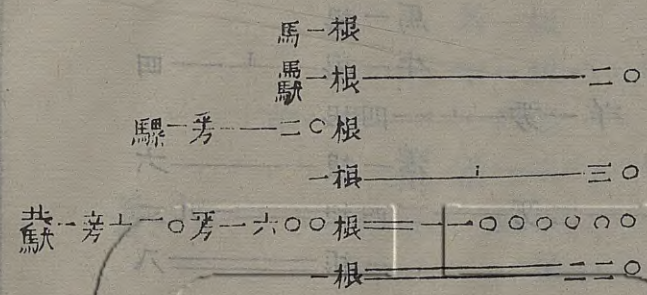 馬一根
馬馱一根——二〇
騾一旁——二〇根
一根——三〇
共馱一旁⊥一〇旁一六〇〇根＝一一〇〇〇〇〇〇
一根＝二二〇